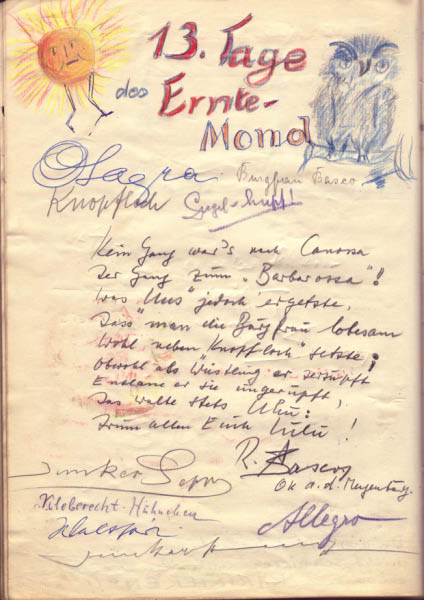 13. Tage
des Ernte-
Mond
Osagra. Burgfrau Basco
Knopfloch
Kein Gang war's nach Canossa
Der Gang zum „Barbarossa"!
Was „Uns" jedoch ergetzte,
Dass man die Burgfrau lobesam
Wohl neben „Knopfloch" setzte;
Obwohl als Wüstling er zerzupft
Entlane er sie ungerupft,
Das walte stets Uhu:
Drum allen Euch Lulu!
R. Basco
a. d. Meyenburg.
Junker Sepp
Hühnchen
Allegro